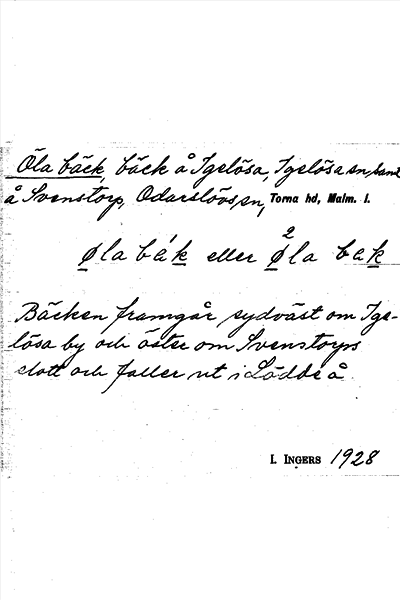 Öla bäck, bäck å Igelösa, Igelösa sn, samt
å Svenstorp, Odarslövs sn, Torna hd, Malm. l.
øla bäk eller øla bäk
Bäcken framgår sydväst om Ige-
lösa by och öster om Svenstorps
slott och faller ut i Lödde å.
I. INGERS 1928